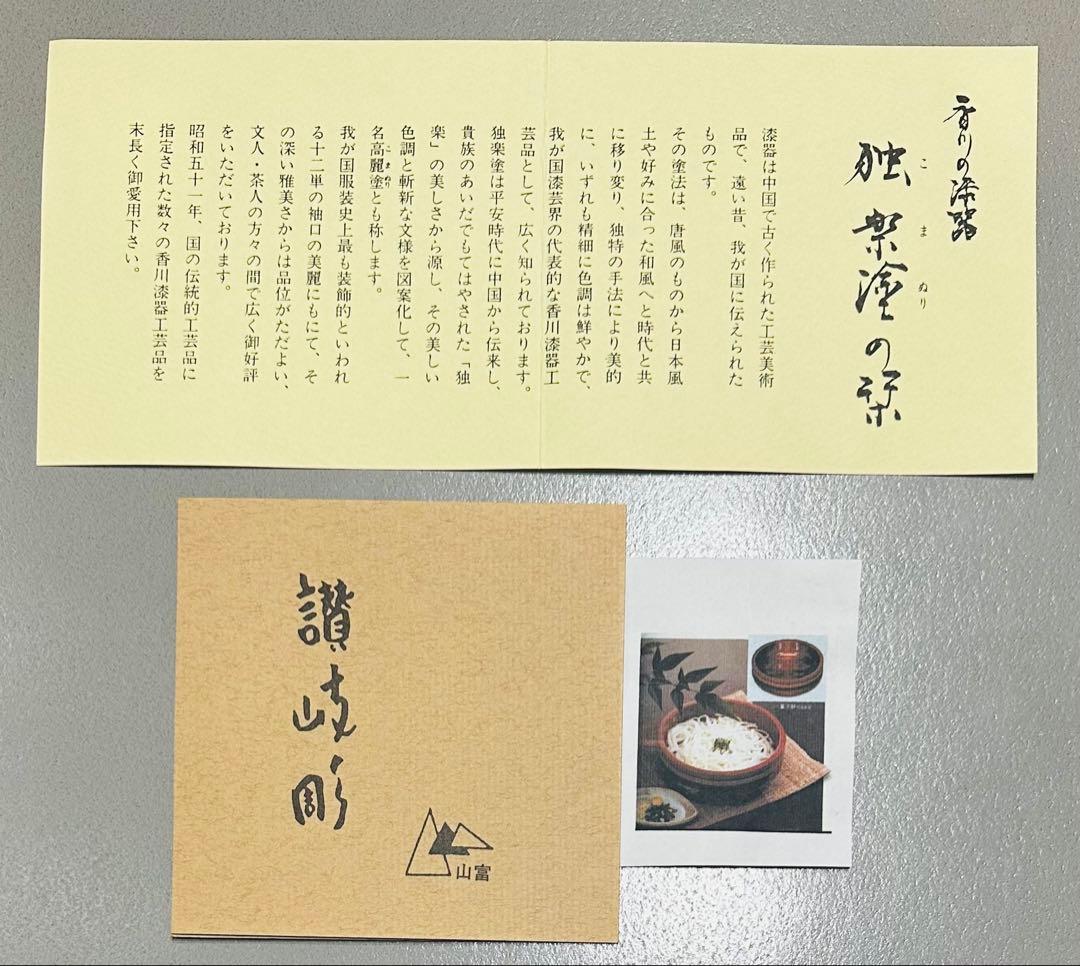 香川の漆器
独楽塗の栞
こまぬり
漆器は中国で古く作られた工芸美術
品で、遠い昔、我が国に伝えられた
ものです。
その塗法は、唐風のものから日本風
土や好みに合った和風へと時代と共
に移り変り、独特の手法により美的
に、いずれも精細に色調は鮮やかで、
我が国漆芸界の代表的な香川漆器工
芸品として、広く知られております。
独楽塗は平安時代に中国から伝来し、
貴族のあいだでもてはやされた「独
楽」の美しさから源し、その美しい
色調と斬新な文様を図案化して、一
名高麗塗とも称します。
こまぬり
我が国服装史上最も装飾的といわれ
る十二単の袖口の美麗にもにて、そ
の深い雅美さからは品位がただよい、
文人・茶人の方々の間で広く御好評
をいただいております。
昭和五十一年、国の伝統的工芸品に
指定された数々の香川漆器工芸品を
末長く御愛用下さい。
讃岐彫
山富